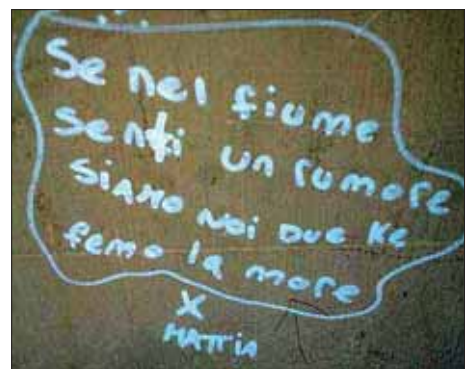 Se nel fiume
Senti un rumore
SiAMO NOi DUE Ke
femo la more
X
MATTIA